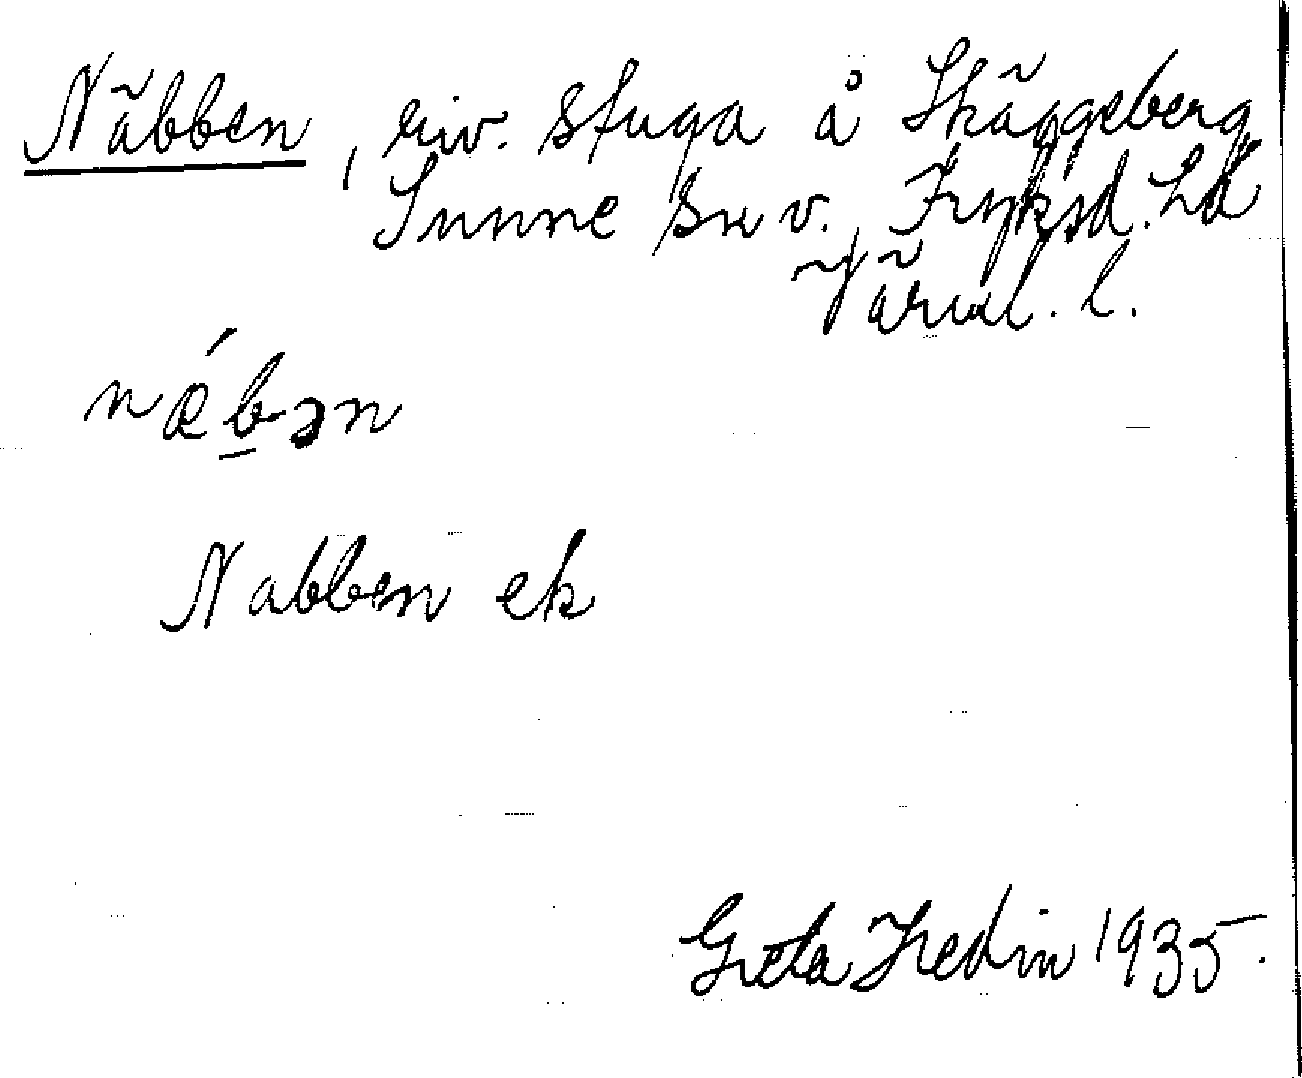 Näbben, riv. stuga å Skäggeberg
Sunne sn v., Fryksd. hd
Värml. l.
nǽb̲ən
Nabben ek
Greta Hedin 1935.